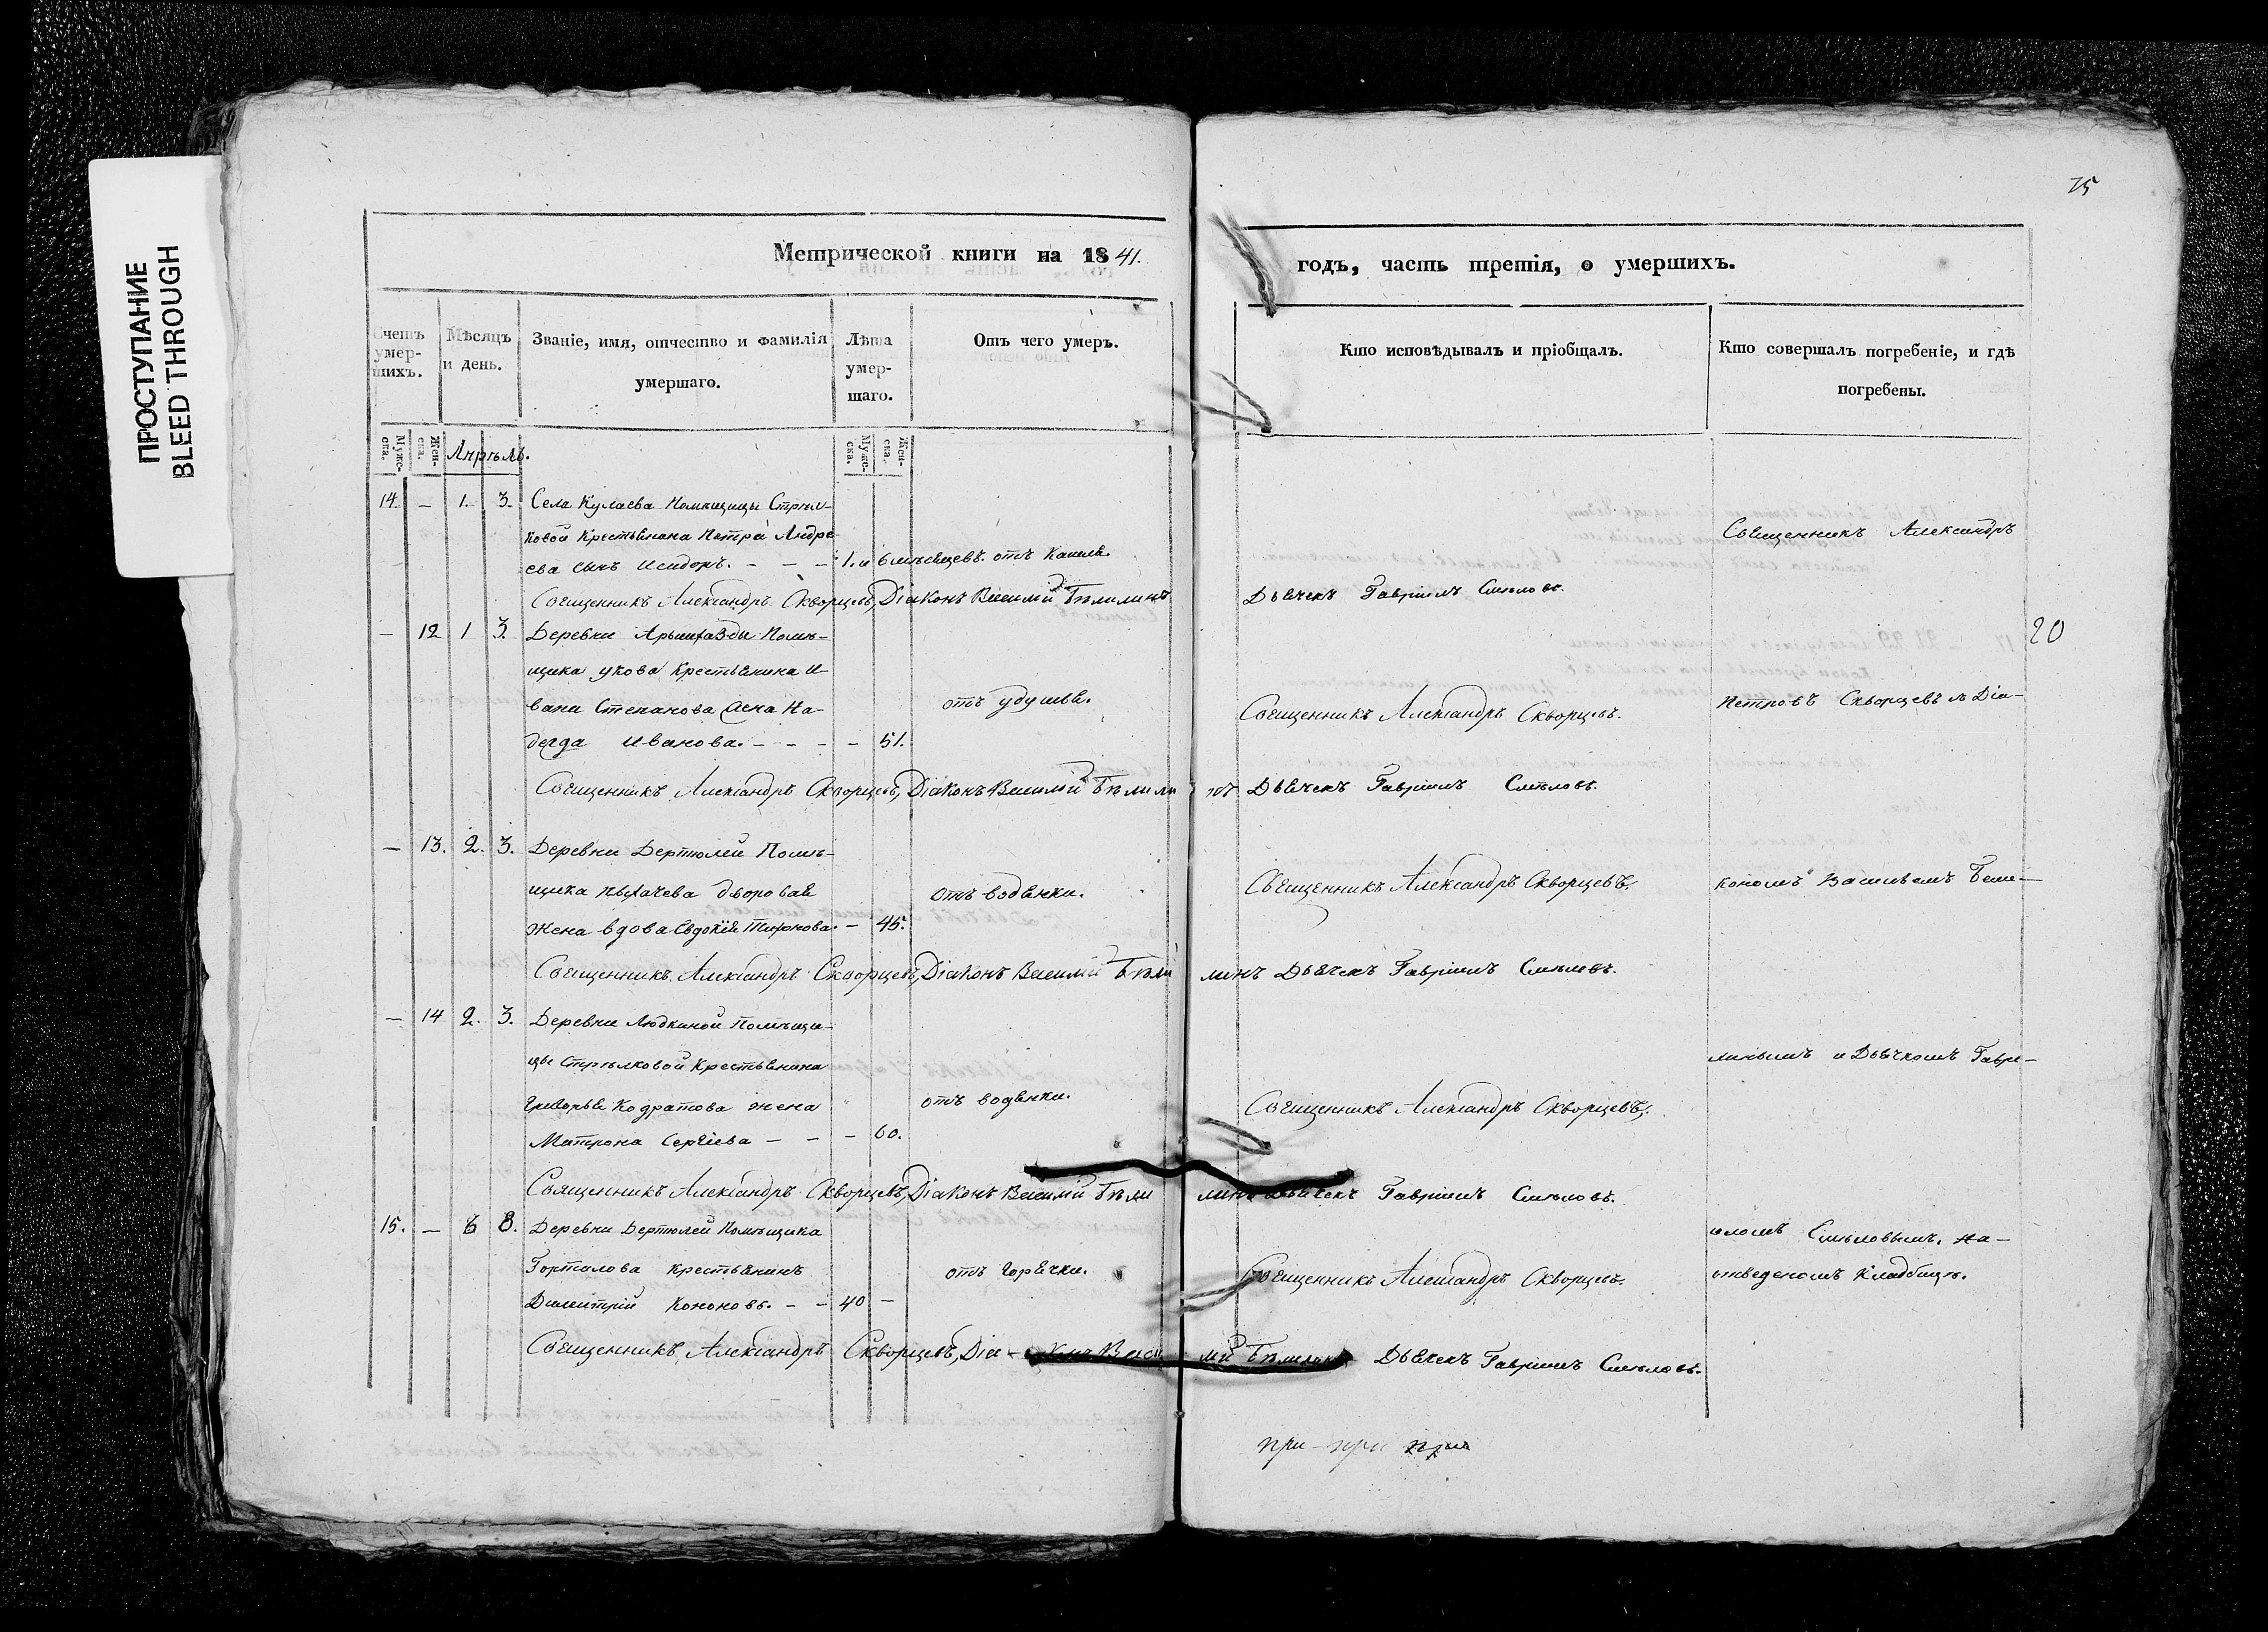 ПРОСТУПАНИЕ
BLEED THROUGH
75
Метрической книги на 1841.
годъ, часть третія, о умершихъ.
Счетъ умер-
шихъ.
Мѣсяцъ
и день.
Званіе, имя, отчество и фамилія
умершаго.
Лѣта
умер-
шаго.
Отъ чего умеръ.
Кто исповѣдывалъ и пріобщалъ.
Кто совершалъ погребеніе, и гдѣ
погребены.
Муже-
ска.
Жен-
ска.
Апрѣль.
Муже-
ска.
Жен-
ска.
14. — 1. 3. Села Кулаева Помѣщицы Стрѣл-
ковой Крестьянина Петра Андре-
ева сынъ Исидоръ. — — — 1. и 6 мѣсяцевъ. отъ Кашля.
Священникъ Александръ
Священникъ Александръ Скворцевъ, Діаконъ Василій Бѣлилинъ Дьячекъ Гавріилъ Смѣловъ.
— 12 1 3. Деревни Помѣ-
щика Крестьянина И-
вана Степанова жена На-
дежда Иванова. — — — — 51.
отъ удушья.
Священникъ Александръ Скворцевъ.
Петровъ Скворцевъ съ Діа-
20
Священникъ Александръ Скворцевъ, Діаконъ Василій Бѣлилинъ Дьячекъ Гавріилъ Смѣловъ.
— 13. 2. 3. Деревни Дертюлей Помѣ-
щика дворовая
жена вдова Евдокія — 45.
отъ водянки.
Священникъ Александръ Скворцевъ.
кономъ Васильемъ Бели-
Священникъ Александръ Скворцевъ, Діаконъ Василій Бѣлилинъ Дьячекъ Гавріилъ Смѣловъ.
— 14 2. 3. Деревни Людкиной Помѣщи-
цы Стрѣлковой Крестьянина
Григорья Кодратова жена
Матрона Сергіева — — — 60.
отъ водянки.
Священникъ Александръ Скворцевъ.
линымъ и Дьячкомъ Гавре-
Священникъ Александръ Скворцевъ, Діаконъ Василій Бѣлилинъ Дьячекъ Гавріилъ Смѣловъ.
15. — 6 8. Деревни Дертюлей Помѣщика
Горталова крестьянинъ
Димитрій Кононовъ. — — 40 —
отъ горячки.
Священникъ Александръ Скворцевъ.
иломъ Смѣловымъ, на-
отведеномъ Кладбищѣ.
Священникъ Александръ Скворцевъ, Діаконъ Василій Бѣлилинъ Дьячекъ Гавріилъ Смѣловъ.
при - при при